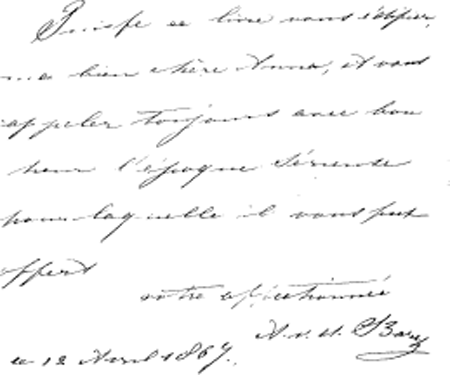 Puisse ce livre vous édifier,
ma bien chère Anna, et vous
appeler toujours avec bon
heur l'époque sérieuse
pour laquelle il vous fut
offert
votre affectionnée
A. v. d.
ce 12 Avril 1867.